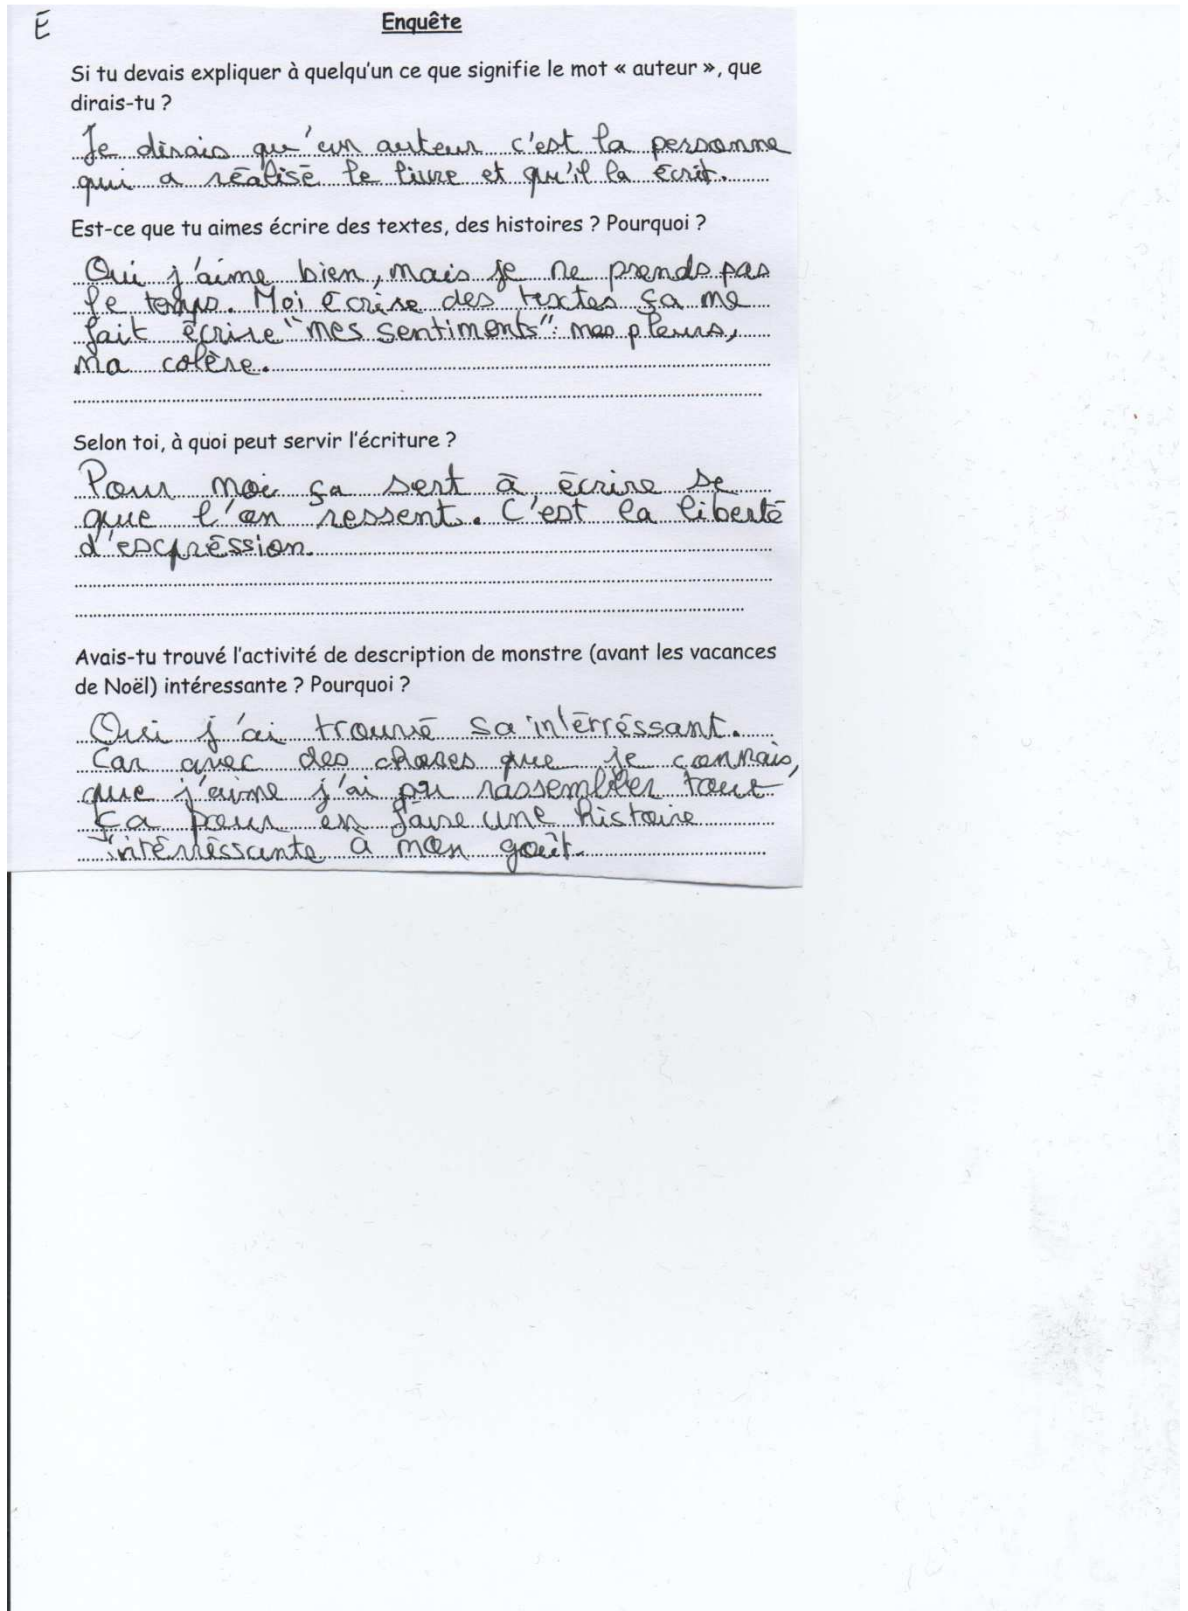 É
Enquête
Si tu devais expliquer à quelqu'un ce que signifie le mot « auteur », que
dirais-tu ?
Je dirais qu'un auteur c'est la personne
qui a réalisé le livre et qu'il la écrit.
Est-ce que tu aimes écrire des textes, des histoires ? Pourquoi ?
Oui j'aime bien, mais je ne prends pas
le temps. Moi écrire des textes ça me
fait écrire "mes sentiments": mes pleurs,
ma colère.
Selon toi, à quoi peut servir l'écriture ?
Pour moi ça sert à écrire se
que l'on ressent. C'est la liberté
d'expréssion.
Avais-tu trouvé l'activité de description de monstre (avant les vacances
de Noël) intéressante ? Pourquoi ?
Oui j'ai trouvé sa intérréssant.
Car avec des choses que je connais,
que j'aime j'ai pu rassembler tout
ça pour en faire une histoire
intérréssante à mon goût.